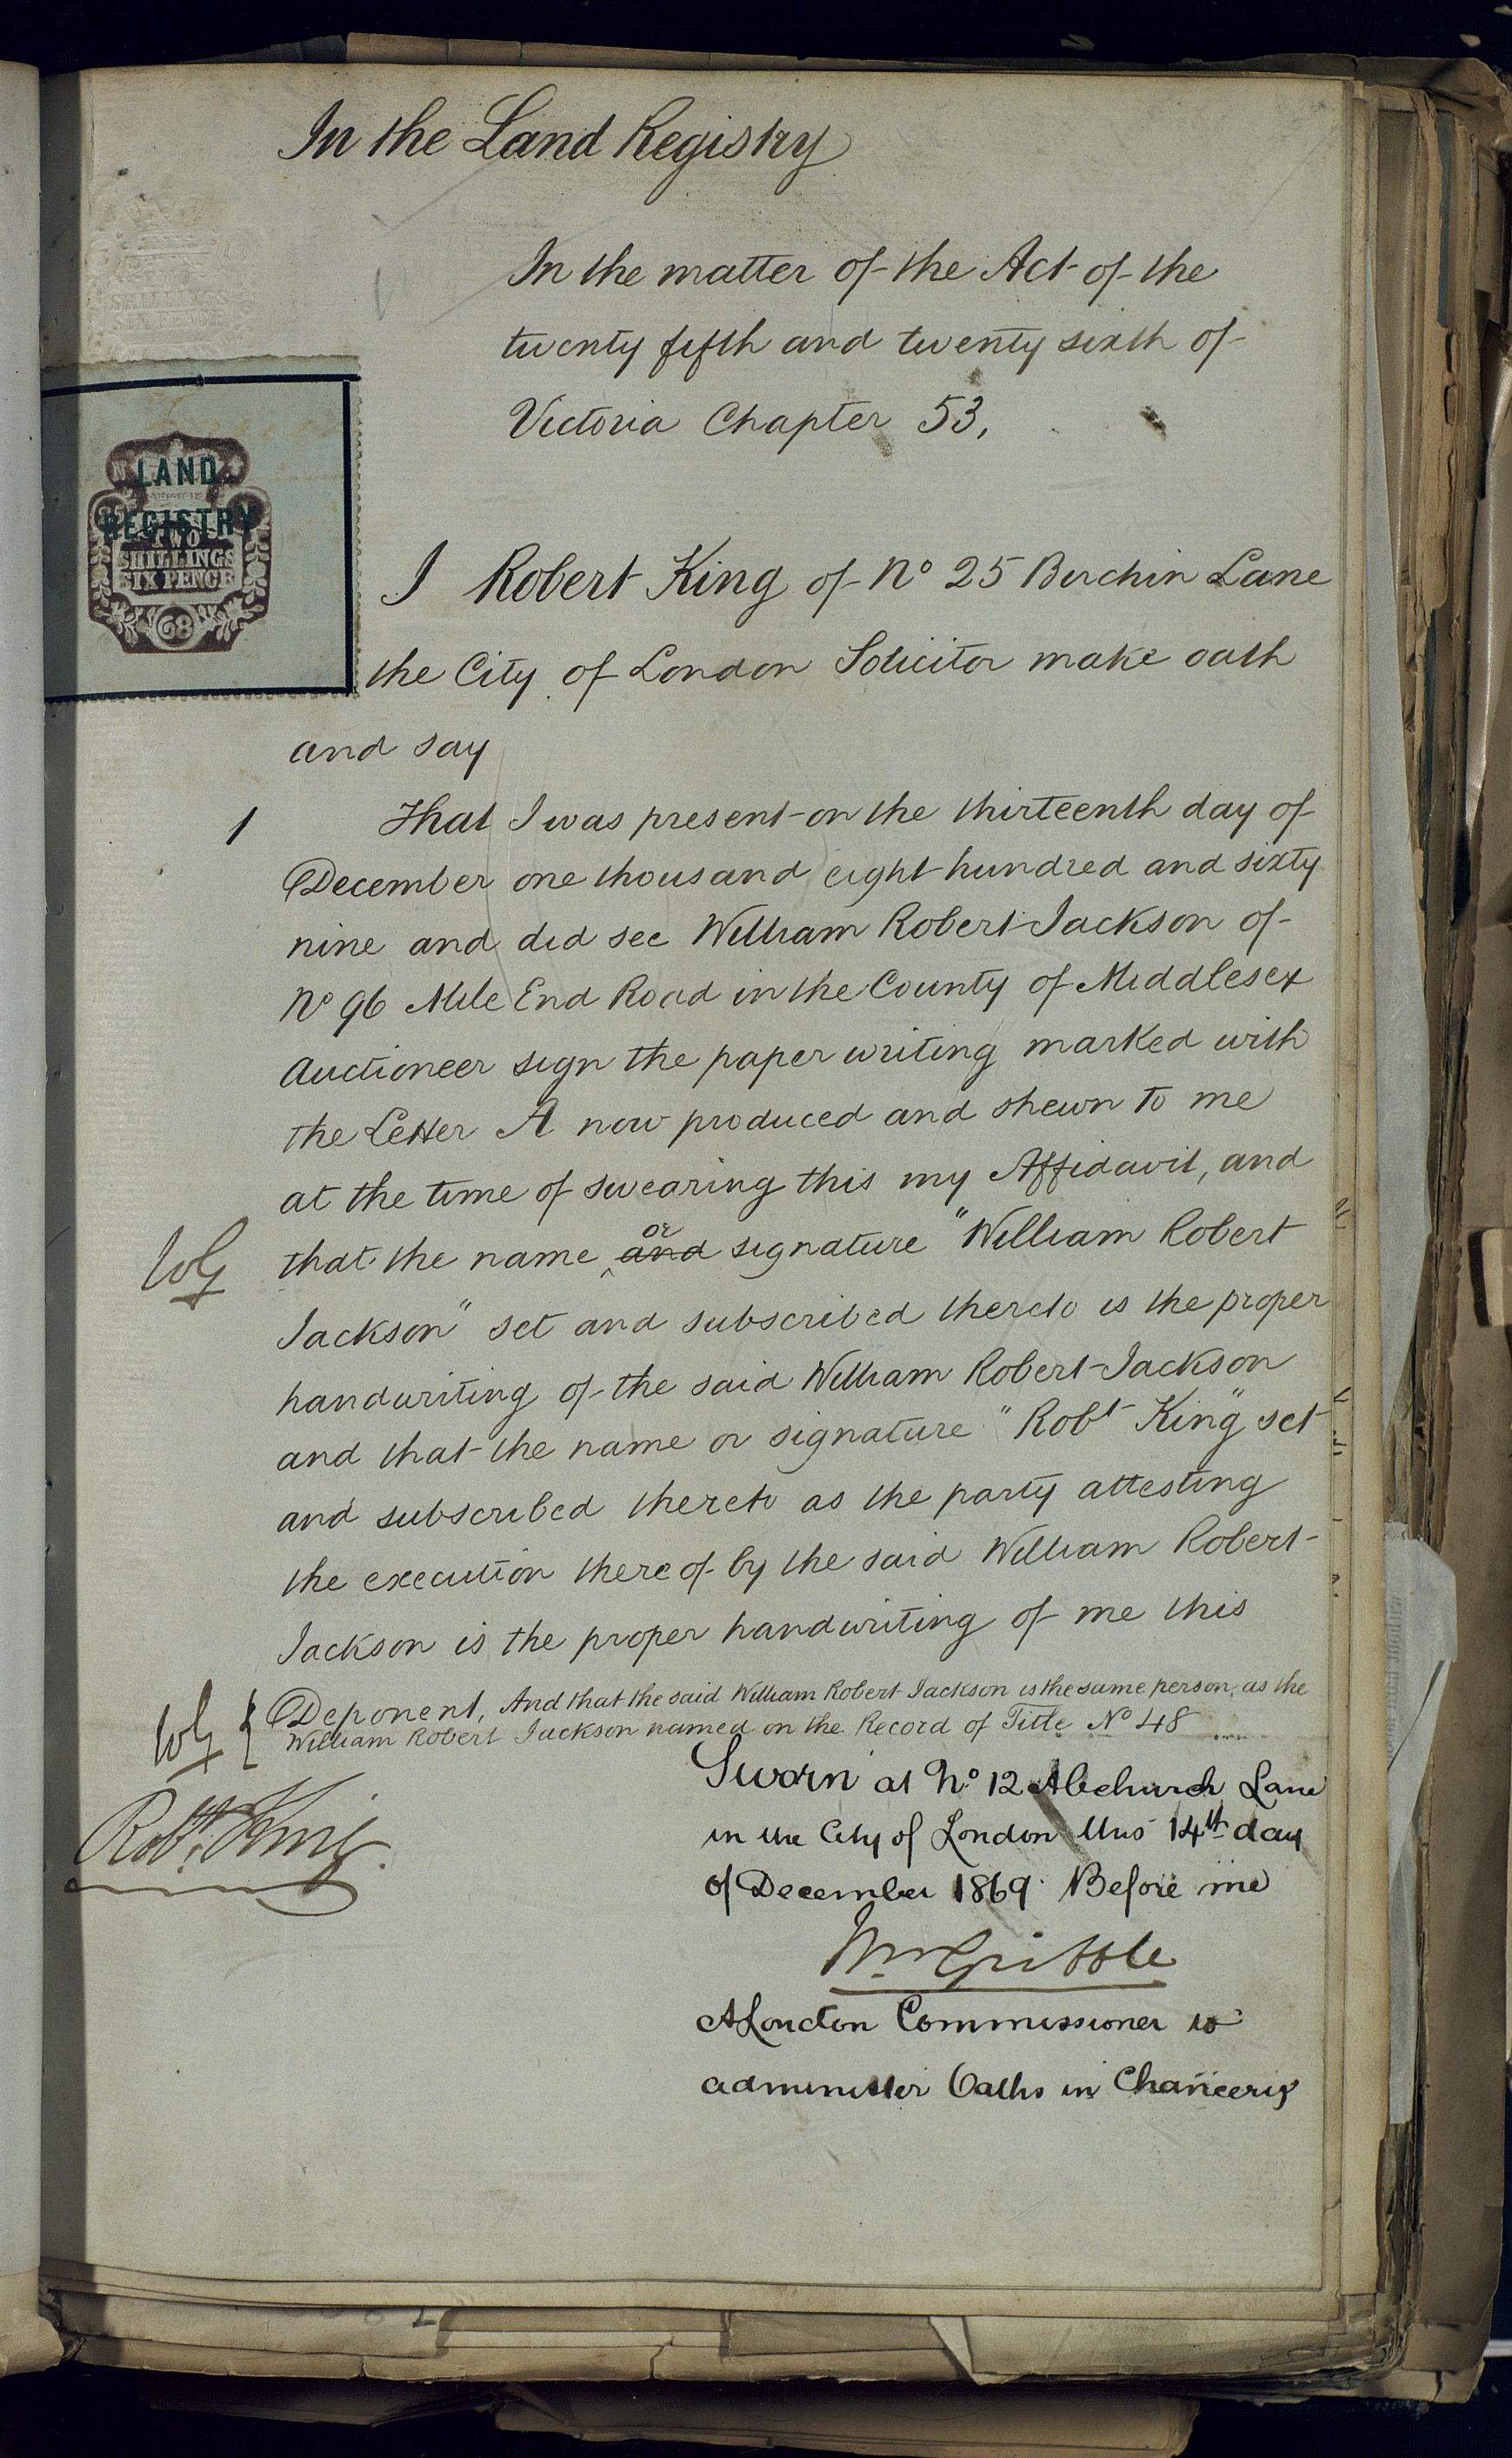 In the Land Registry
In the matter of the Act of the
twenty fifth and twenty sixth of
Victoria Chapter 53,
SHILLINGS
SIX PENCE
LAND
REGISTRY
TWO
SHILLINGS
SIX PENCE
68
I Robert King of No 25 Birchin Lane
the City of London Solicitor make oath
and say
1 That I was present on the thirteenth day of
December one thousand eight hundred and sixty
nine and did see William Robert Jackson of
No 96 Mile End Road in the County of Middlesex
Auctioneer sign the paper writing marked with
the Letter A now produced and shewn to me
at the time of swearing this my Affidavit, and
that the name and or signature "William Robert
Jackson" set and subscribed thereto is the proper
handwriting of the said William Robert Jackson
and that the name or signature "Robt King" set
and subscribed thereto as the party attesting
the execution thereof by the said William Robert
Jackson is the proper handwriting of me this
WG Deponent, And that the said William Robert Jackson is the same person as the
William Robert Jackson named on the Record of Title No 48
Sworn at No 12 Abchurch Lane
in the City of London this 14th day
of December 1869 Before me
Robt. King.
Wm Gribble
A London Commissioner to
administer Oaths in Chancery